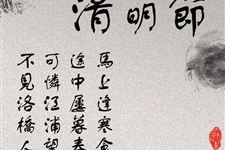 清明節
馬上逢寒食
途中屬暮春
可憐江浦望
不見洛橋人